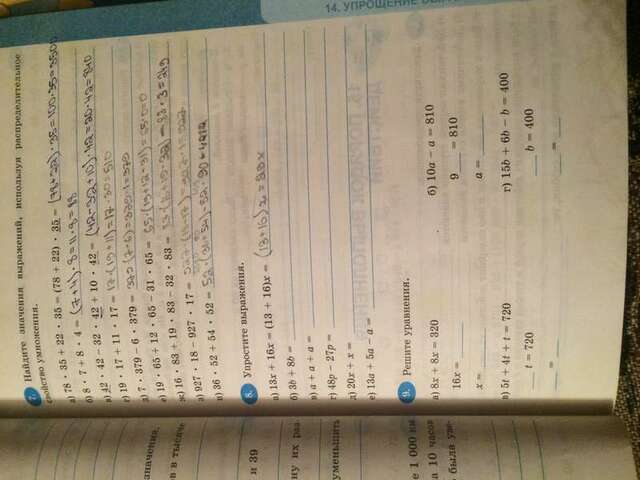 14. УПРОЩЕНИЕ
7. Найдите значения выражений, используя распределительное
свойство умножения.
а) 78 · 35 + 22 · 35 = (78 + 22) · 35 = (78+22) · 35 = 100 · 35 = 3500
б) 8 · 7 + 8 · 4 = (7+4) · 8 = 11 · 8 = 88
в) 42 · 42 − 32 · 42 + 10 · 42 = (42-32+10) · 42 = 20 · 42 = 840
г) 19 · 17 + 11 · 17 = 17 · (19+11) = 17 · 30 = 510
д) 7 · 379 − 6 · 379 = 379 (7-6) = 379 · 1 = 379
е) 19 · 65 + 12 · 65 − 31 · 65 = 65 · (19+12-31) = 65 · 0 = 0
ж) 16 · 83 + 19 · 83 − 32 · 83 = 83 · = 83 · 3 = 249
з) 927 · 18 − 927 · 17 = 927
и) 36 · 52 + 54 · 52 = 52 · (36+54) = 52 · 90 =
8. Упростите выражения.
а) 13x + 16x = (13 + 16)x = (13+16) x = 29x
б) 3b + 8b =
в) a + a + a =
г) 48p − 27p =
д) 20x + x =
е) 13a + 5a − a =
9. Решите уравнения.
а) 8x + 8x = 320
16x =
x =
б) 10a − a = 810
9 = 810
a =
в) 5t + 4t + t = 720
t = 720
=
г) 15b + 6b − b = 400
b = 400
=
значения,
в в тысяче
и 39
ну их раз
уменьшить
е 1 000 км
а 10 часов
была уве-